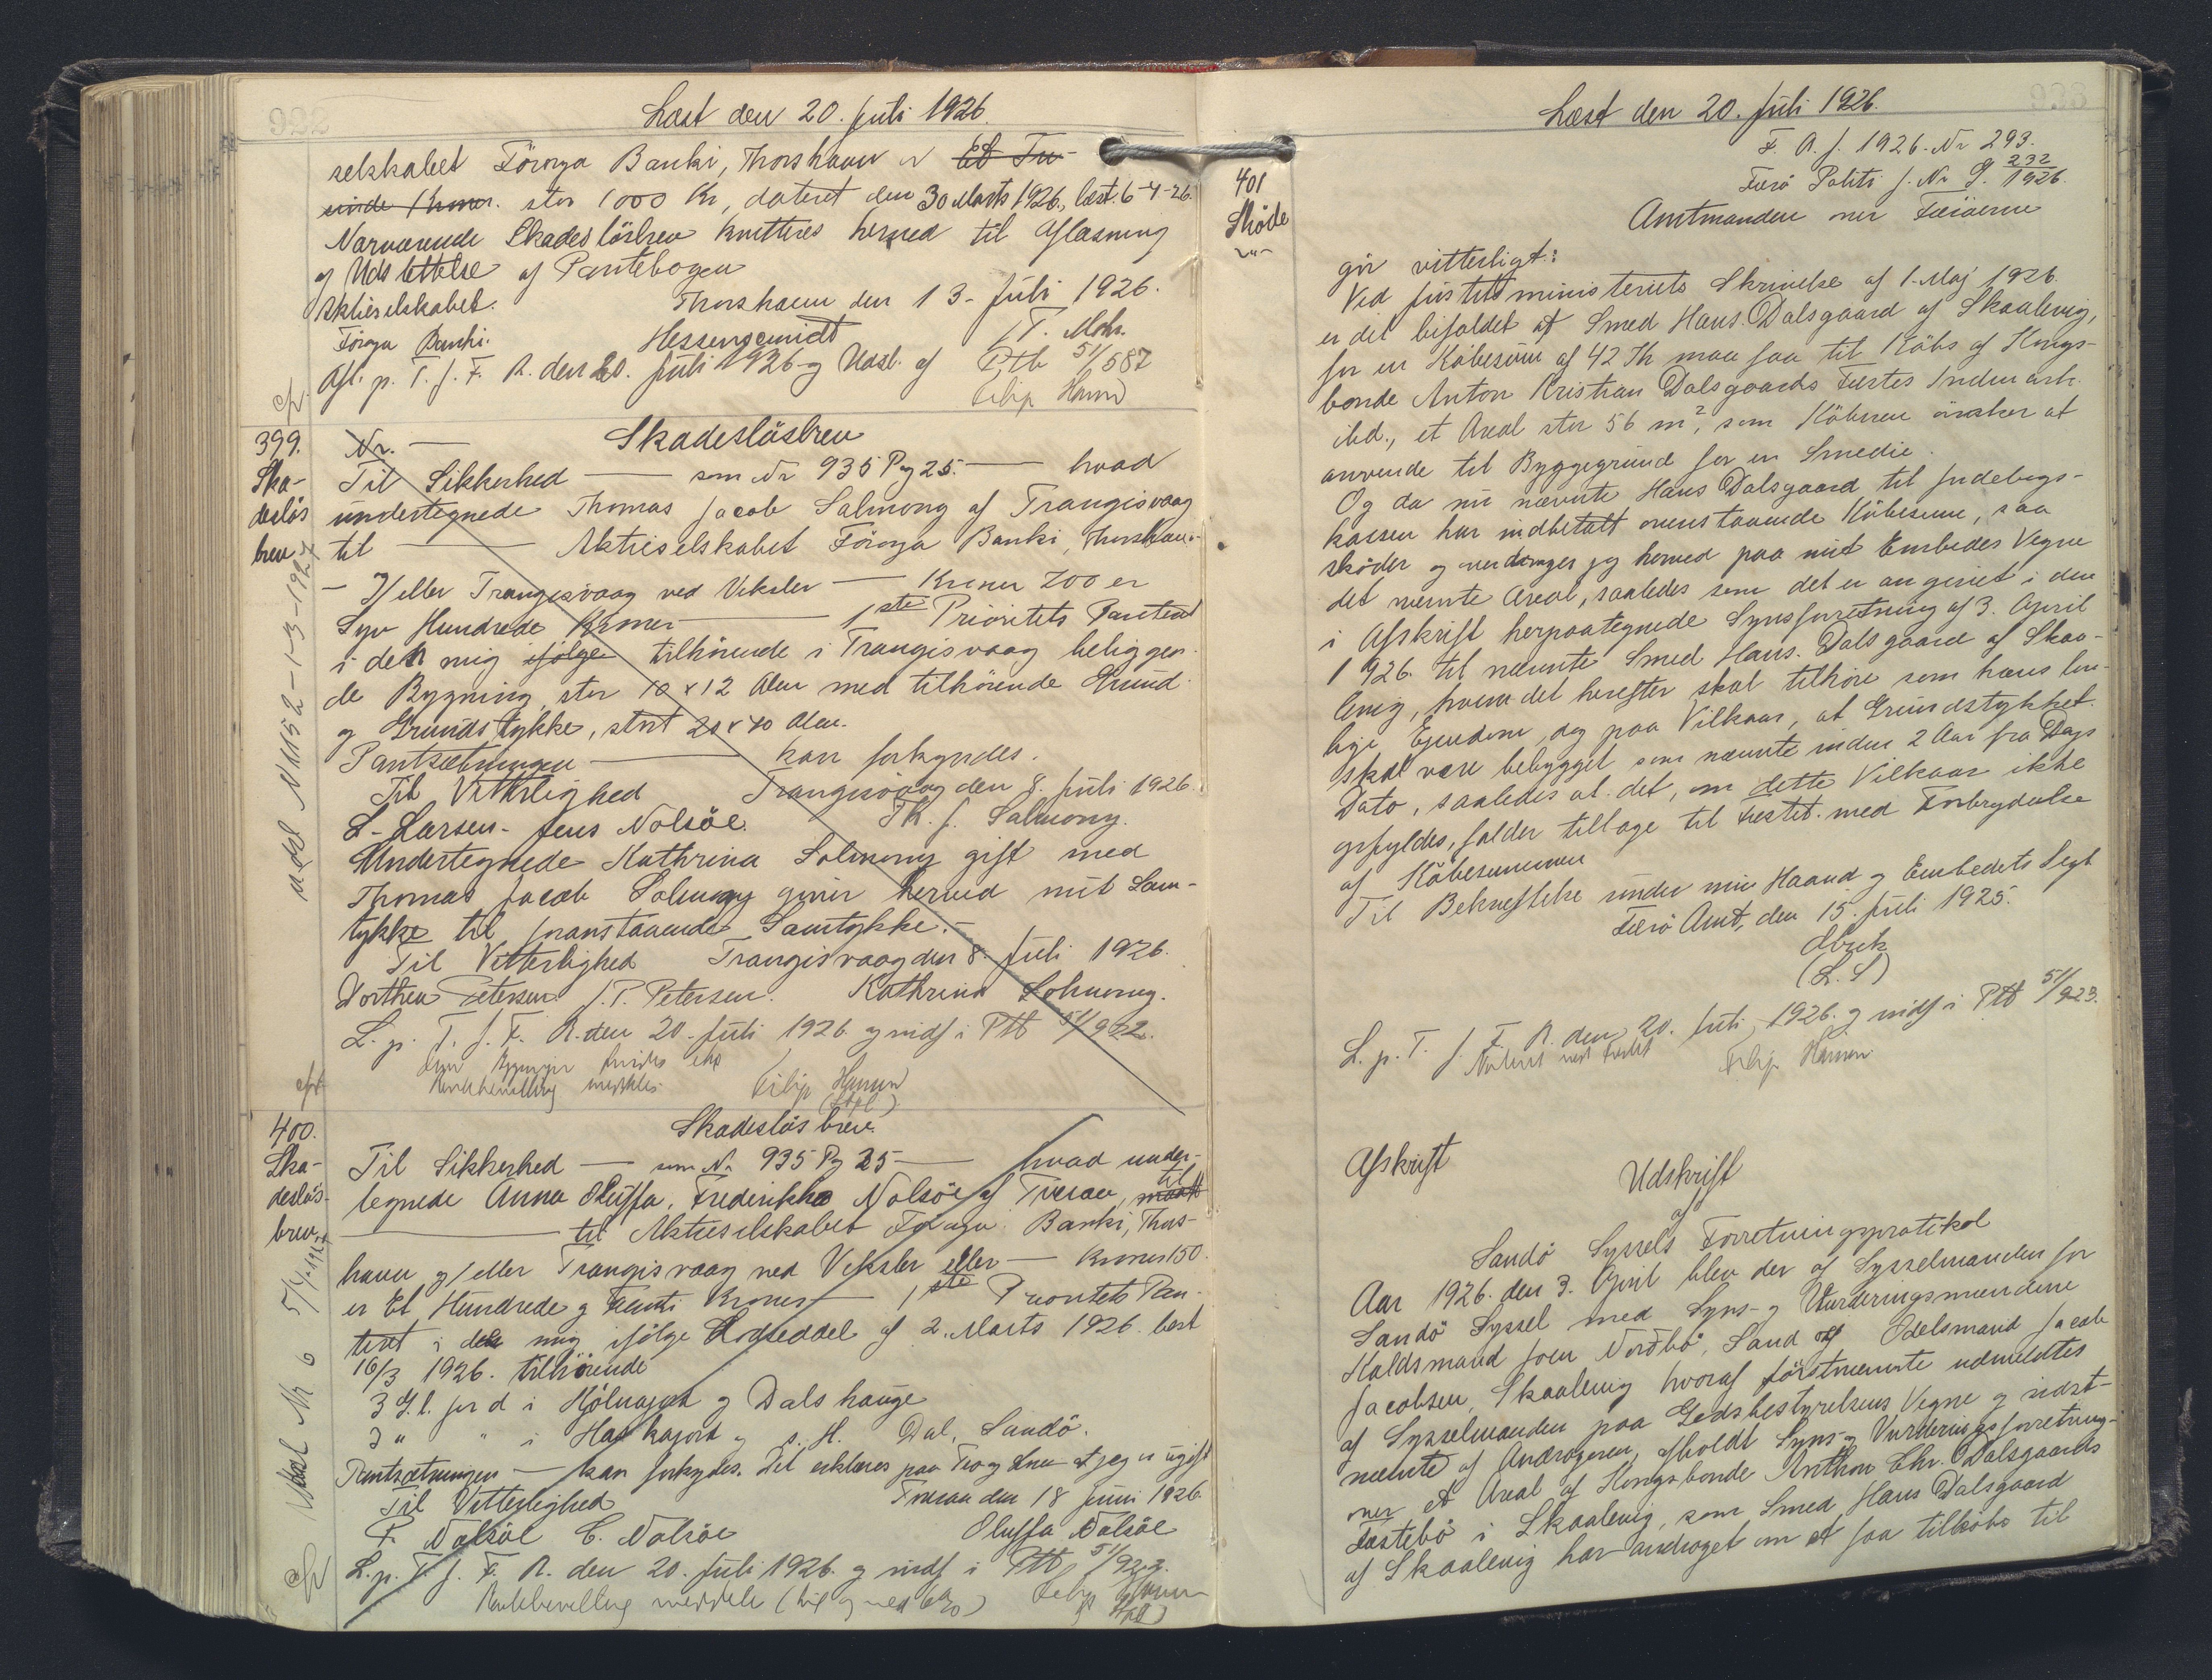 922
Læst den 20. Juli 1926.
selskabet Föroya Banki, Thorshavn
stor 1000 Kr, dateret den 30 Marts 1926, læst. 6-4-26.
Nærværende Skadesløsbrev kvitteres herved til Aflæsning
og Udslettelse af Pantebogen
Aktieselskabet. Thorshavn den 13. Juli 1926.
Föroya Banki. T. Mohr.
Afl. p. T. f. F. R. den 20. Juli 1926 og Udsl. af Ptb 51/587
Filip Hansen
399. Skadeslösbrev
Ska-
deslös
brev
Nr. —
Til Sikkerhed — som Nr 935 Pag 25. — hvad
undertegnede Thomas Jacob Salmony af Trangisvaag
til — Aktieselskabet Föroya Banki, Thorshavn
— eller Trangisvaag ved Veksler — Kroner 700 er
Syv Hundrede Kroner — 1ste Prioritets Panteret
i den mig ifølge tilhörende i Trangisvaag beliggen
de Bygning, stor 10 x 12 Alen med tilhörende Grund
og Grundstykke, stort 20 x 40 Alen.
Pantsætningen — kan forkyndes.
Til Vitterlighed Trangisvaag den 8. Juli 1926.
L. Larsen. Jens Nolsöe. Th. J. Salmony.
Undertegnede Kathrina Salmony gift med
Thomas Jacob Salmony giver herved mit Sam-
tykke til foranstaaende Samtykke.
Til Vitterlighed Trangisvaag den 8. Juli 1926.
Dorthea Petersen J. P. Petersen. Kathrina Salmony.
L. p. T. f. F. R. den 20. Juli 1926 og indf i Ptb 51/922.
Filip Hansen
400. Skadeslösbrev.
Ska-
deslös-
brev.
Til Sikkerhed — som Nr 935 Pg 25 — hvad under-
tegnede Anna Oluffa, Frederikka Nolsöe af Tveraa, til
— til Aktieselskabet Föroya Banki, Thors-
havn og/eller Trangisvaag ved Veksler eller — Kroner 150.
er Et Hundrede og Femti Kroner — 1ste Prioritets Pan-
teret i den mig ifölge Lodseddel af 2. Marts 1926. læst
16/3 1926. tilhörende
3 G.l. jord i og Dals hauge
3 " " i og s. st. Dal, Sandö.
Pantsætningen — kan forkyndes. Det erklæres paa Tro og Love at jeg er ugift
Til Vitterlighed Tveraa den 18 Juni 1926.
P. Nolsöe C. Nolsöe Oluffa Nolsöe
L. p. T. f. F. R. den 20. Juli 1926. og indf i Ptb 51/922.
Filip Hansen
923
Læst den 20. Juli 1926.
F. A. J. 1926. Nr 293.
Færö Politi J. Nr G. 232/1926.
401
Sköde
Amtmanden over Færöerne
gör vitterligt:
Ved Justitsministeriets Skrivelse af 1. Maj 1926.
er det bifaldet at Smed Hans. Dalsgaard af Skaalevig,
for en Köbesum af 42 Kr maa faa til Köbs af Kongs-
bonde Anton Kristian Dalsgaards Fæstes Indmark
ibd., et Areal stor 56 m², som Köberen önsker at
anvende til Byggegrund for en Smedie.
Og da nu nævnte Hans Dalsgaard til Jordebogs-
kassen har indbetalt ovenstaaende Köbesum, saa
sköder og overdrager jeg herved paa mit Embedes Vegne
det nævnte Areal, saaledes som det er angivet i den
i Afskrift herpaategnede Synsforretning af 3. April
1926. til nævnte Smed Hans. Dalsgaard af Skaa-
levig, hvem det herefter skal tilhöre som hans lov-
lige Ejendom, dog paa Vilkaar, at Grundstykket
skal være bebygget som nævnte inden 2 Aar fra Dags
Dato, saaledes at det, om dette Vilkaar ikke
opfyldes, falder tilbage til Fæstet med Forbrydelse
af Köbesummen
Til Bekræftelse under min Haand og Embedets Segl
Færö Amt, den 15. Juli 1925.
(L. S)
L. p. T. f. F. R. den 20. Juli, 1926. og indf i Ptb 51/923.
Noteret ved Fæstet Filip Hansen
Afskrift
Udskrift
af
Sandö Syssels Forretningsprotokol
Aar 1926. den 3. April blev der af Sysselmanden for
Sandö Syssel med Syns- og Vurderingsmændene
Joen Nordbö, Sand og Odelsmand Jacob
Jacobsen, Skaalevig hvoraf förstnævnte udmeldtes
af Sysselmanden paa Godsbestyrelsens Vegne og sidst-
nævnte af Andrageren, afholdt Syns- og Vurderingsforretning
over et Areal af Kongsbonde Anthon Chr. Dalsgaards
Fæstebö i Skaalevig, som Smed Hans Dalsgaard
af Skaalevig har andraget om at faa tilköbs til